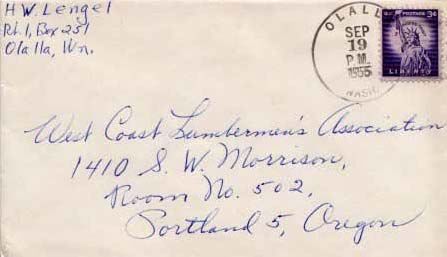 H W. Lengel
Rt. 1, Box 251
Olalla, Wn.
OLALLA
SEP
19
P.M.
1955
WASH.
U.S. POSTAGE 3¢
LIBERTY
West Coast Lumbermen's Association
1410 S. W. Morrison,
Room No. 502,
Portland 5, Oregon